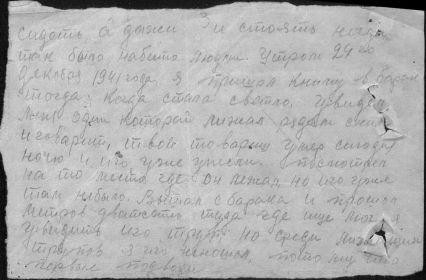 сидать, а дажи и стоять негде
так было набито людми. Утром 24го
Декабря 1941 года я пришол к нему в барак
тогда, когда стало светло, увидел
мне один которой лижал рядом с ним
и говорит, твой товарищ умер сегодня
ночю и его уже унесли. Я посмотрел
на то место где он лежал, но его уже
там небыло. Вытил с барака и прошол
метров дватсать туда где ище мог я
увидить его труп но среди лижащих
трупов я его ненашол, потому что
первые подводы